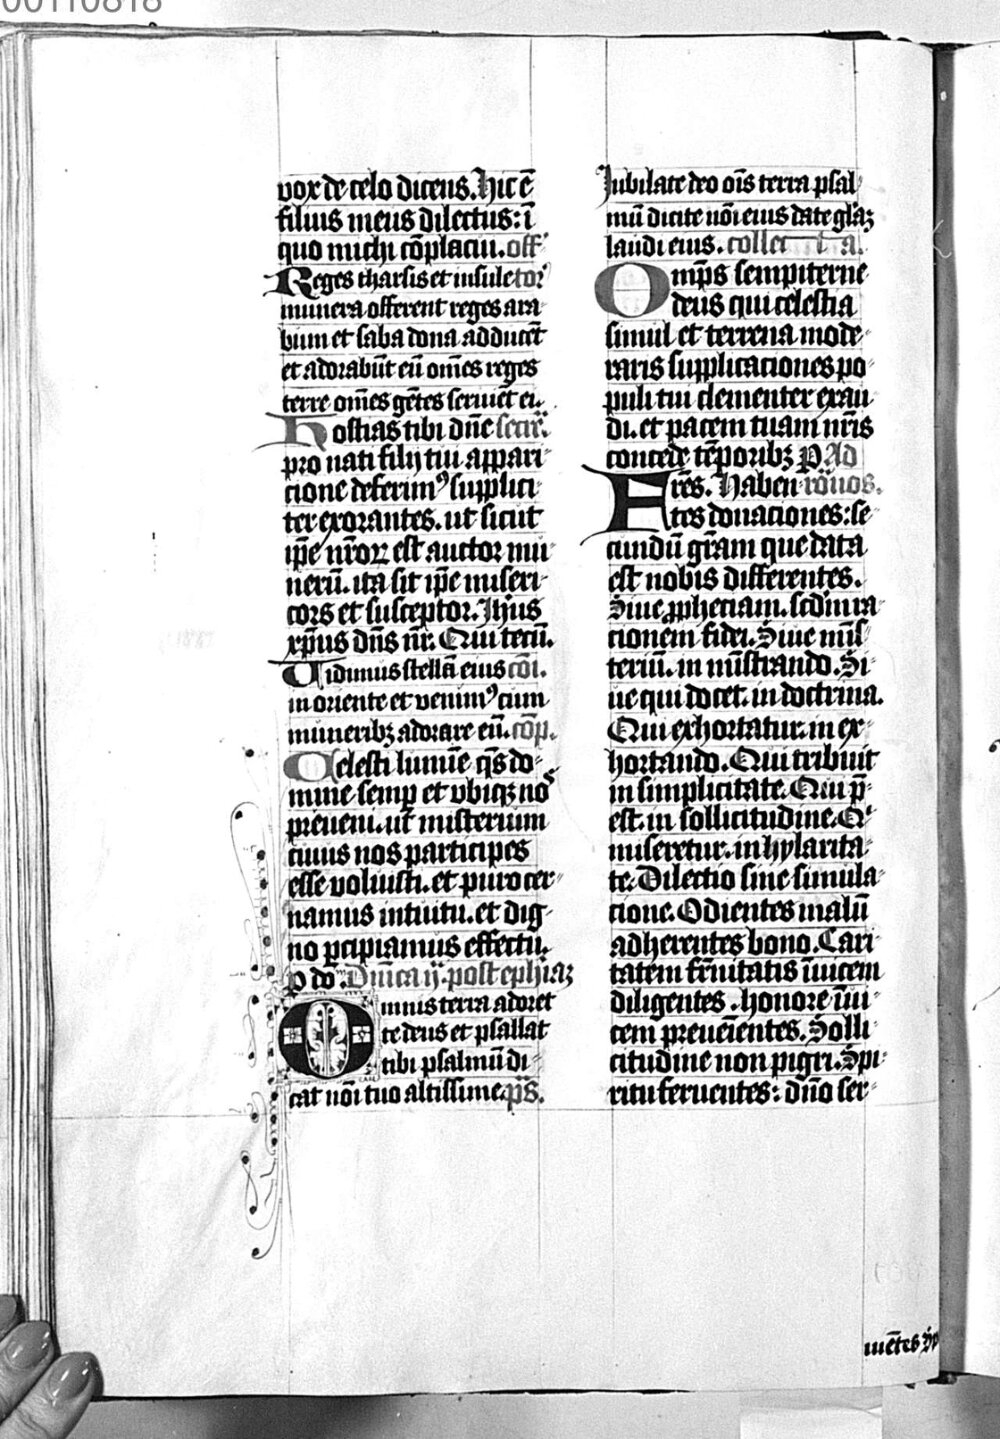 00110818
vox de celo dicens. Hic ē
filius meus dilectus: ī
quo michi cōplacui. off'
Reges tharsis et insule tor
munera offerent reges ara
bum et saba dona adducēt
et adorabūt eū om̄es reges
terre om̄es gētes seruiēt ei.
Hostias tibi dn̄e secr̄.
pro nati filij tui appari
cione deferimꝰ supplici
ter exorantes. ut sicut
ip̄e nr̄oꝝ est auctor mu
nerū. ita sit ip̄e miseri
cors et susceptor. Jh̄us
xp̄us dn̄s nr̄. Qui tecū.
Uidimus stellā eius cōi.
in oriente et venimꝰ cum
muneribꝫ adorare eū. cōp.
Celesti lumīe q̄s do
mine semꝑ et vbiqꝫ nos
preueni. ut misterium
cuius nos participes
esse voluisti. et puro cer
namus intuitu. et dig
no ꝑcipiamus effectu.
p do. Dn̄ica ij. post ephiaꝫ
Omnis terra adoret
te deus et psallat
tibi psalmū di
cat nōi tuo altissime. p̄s.
Jubilate deo ōis terra psal
mū dicite nōi eius date gl̄aꝫ
laudi eius. collecta.
Omp̄s sempiterne
deus qui celestia
simul et terrena mode
raris supplicaciones po
puli tui clementer exau
di. et pacem tuam nr̄is
concede tēporibꝫ P Ad
Fr̄es. Haben rōnos.
tes donaciones: se
cundū gr̄am que data
est nobis differentes.
Siue ꝓpheciam. scdm ra
cionem fidei. Siue mīs
teriū. in mīstrando. Si
ue qui docet. in doctrina.
Qui exhortatur. in ex
hortando. Qui tribuit
in simplicitate. Qui p̄
est. in sollicitudine. Q'
miseretur. in hylarita
te. Dilectio sine simula
cione. Odientes malū
adherentes bono. Cari
tatem fr̄nitatis īuicem
diligentes. honore īui
cem preueīentes. Solli
citudine non pigri. Spi
ritu feruentes: dn̄o ser